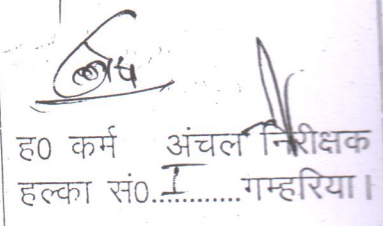 ह0 कर्म अंचल निरीक्षक
हल्का सं0....I.......गम्हरिया।